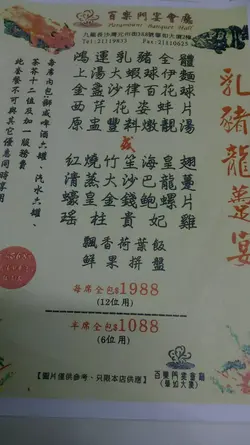 百樂門宴會廳
Paramount Banquet Hall
Tel:21119833 Fax:21110625
鴻運乳豬全體
西芹花姿蚌片
原盅豐料燉靚湯
或
紅燒竹笙海皇翅
清蒸大沙巴龍躉
蠔皇金錢鮑螺片
瑤柱貴妃雞
飄香荷葉飯
鮮果拼盤
每席全包$1988
(12位用)
半席全包$1088
(6位用)
乳豬龍躉宴
每席內包:獅威啤酒六罐、汽水六罐、
茶芥十二位及加一服務費
此套餐不可與其它優惠同時享用
【圖片僅供參考，只限本店供應】
百樂門宴會廳